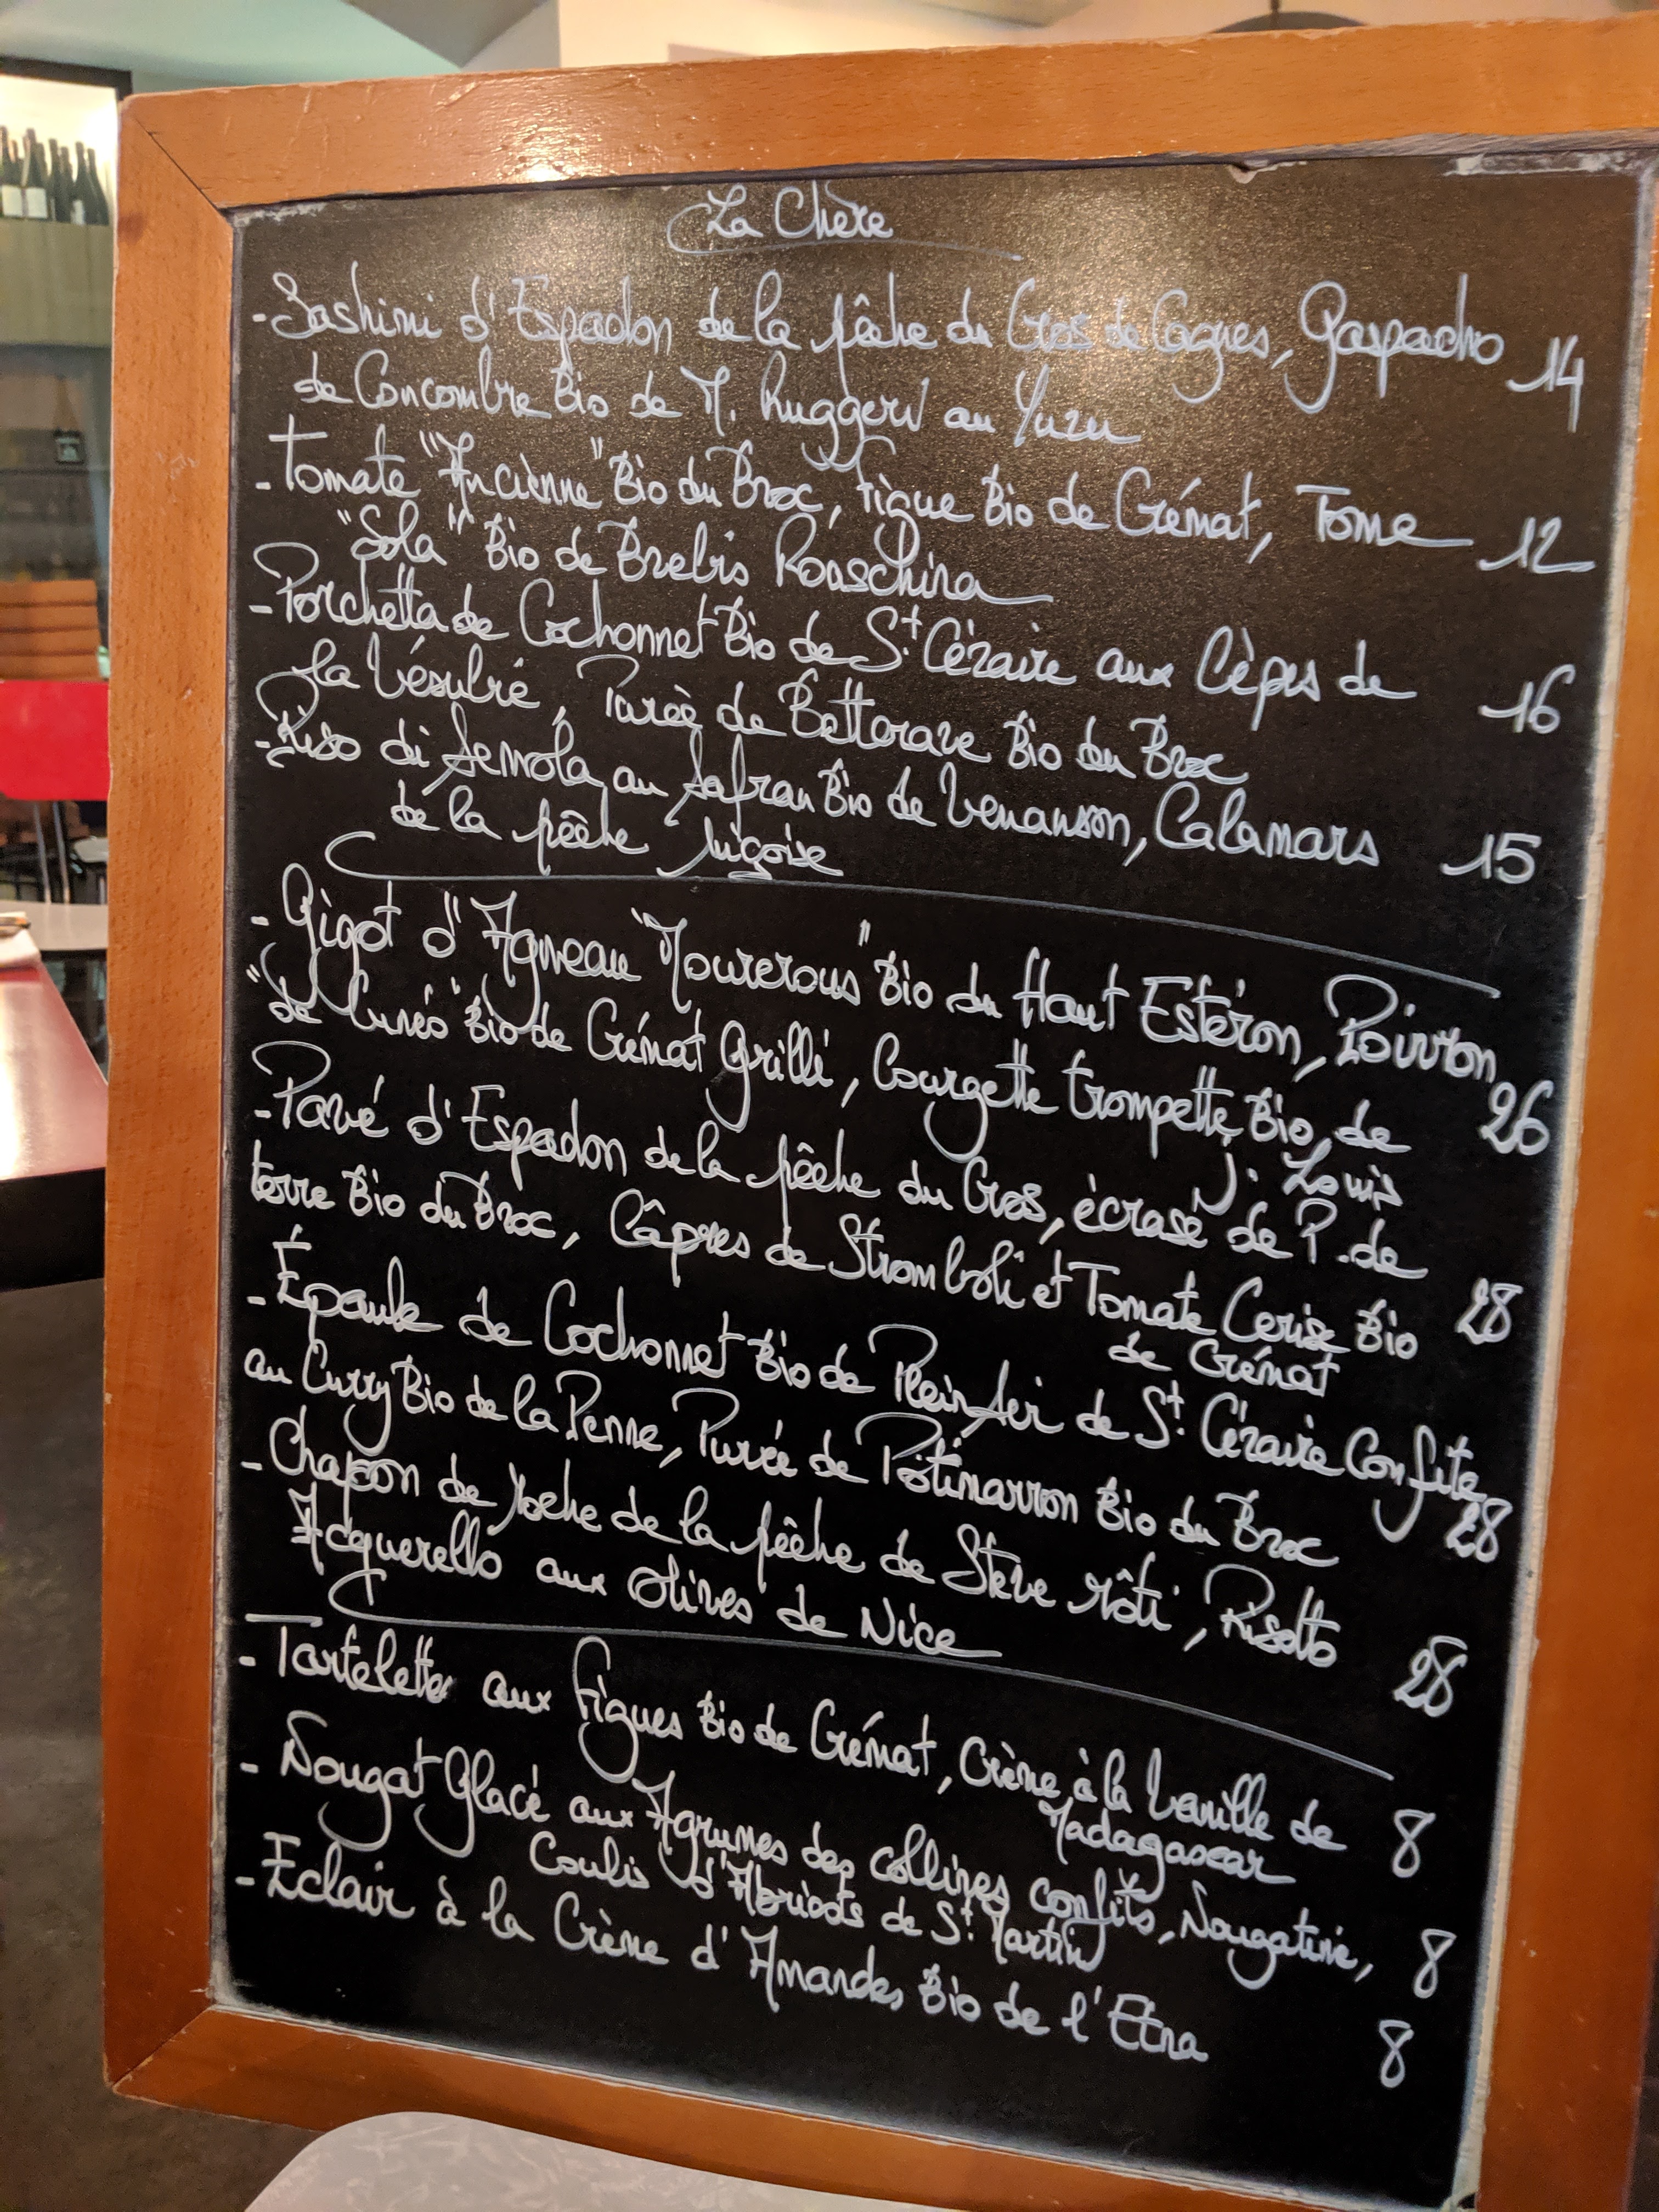 La Chère
- Sashimi d'Espadon de la pêche du Cros de Cagnes, Gaspacho 14
de Concombre Bio de M. Ruggeri au Yuzu
- Tomate "Ancienne" Bio du Broc, Figue Bio de Crémat, Tome 12
"Sola" Bio de Brebis
- Porchetta de Cochonnet Bio de St Cézaire aux Cèpes de 16
la Vésubie, Purée de Betterave Bio du Broc
- Riso di Semola au Safran Bio de Venanson, Calamars 15
de la pêche Niçoise
- Gigot d'Agneau "Mourerous" Bio du Haut Estéron, Poivron
"de Cunéo" Bio de Crémat Grillé, Courgette trompette Bio de 26
J. Louis
- Pavé d'Espadon de la pêche du Cros, écrasé de P. de
terre Bio du Broc, Câpres de Stromboli et Tomate Cerise Bio 28
de Crémat
- Épaule de Cochonnet Bio de Plein Air de St Cézaire Confite
au Curry Bio de la Penne, Purée de Potimarron Bio du Broc 28
- Chapon de roche de la pêche de Steve rôti, Risotto
Acquerello aux Olives de Nice 28
- Tartelette aux figues Bio de Crémat, Crème à la Vanille de 8
Madagascar
- Nougat Glacé aux Agrumes des collines confits, Nougatine, 8
Coulis d'Abricots de St Martin
- Eclair à la Crème d'Amandes Bio de l'Etna 8